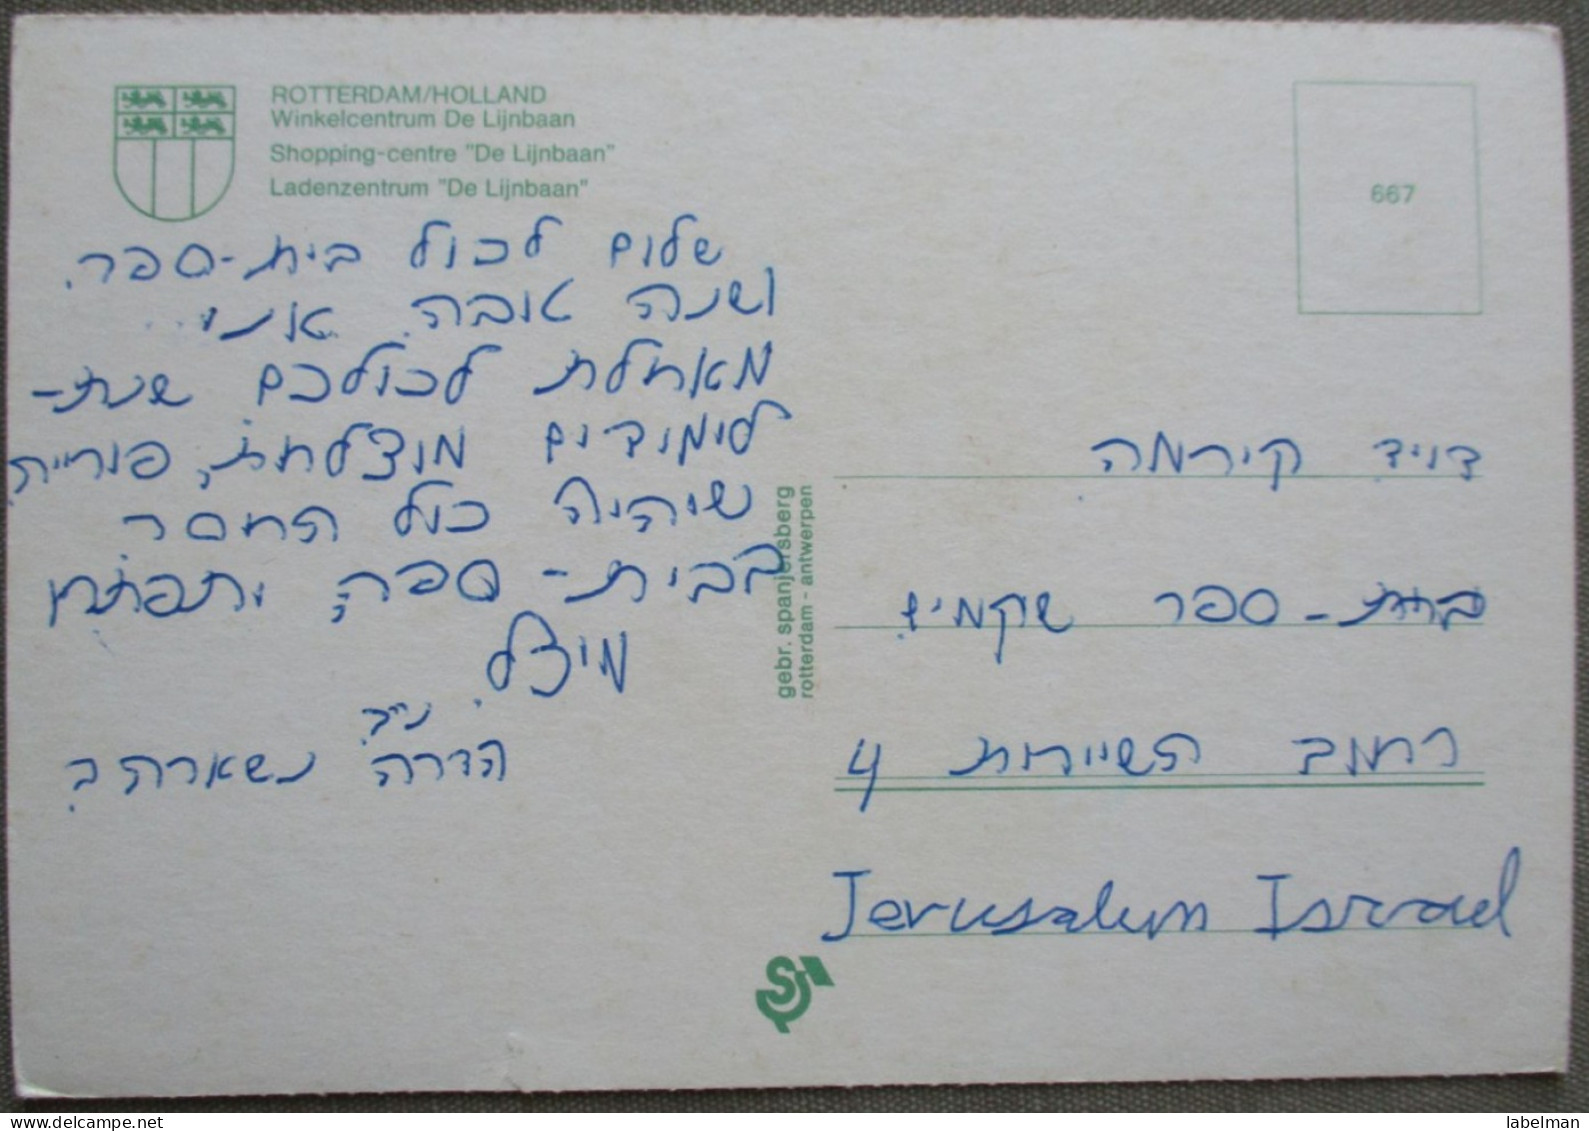 ROTTERDAM/HOLLAND
Winkelcentrum De Lijnbaan
Shopping-centre "De Lijnbaan"
Ladenzentrum "De Lijnbaan"
667
שלום לכול בית-ספר.
ושנה טובה. אני
מאחלת לכולכם שנת-
לימודים מוצלחת, פורייה
שיהיה כול החסר
בבית-ספר,
מיצל.
הדרה נשארה ב
gebr. spanjersberg
rotterdam - antwerpen
דויד קירמה
בית-ספר שקמים
רחוב השיירות 4
Jerusalem Israel
labelman
www.delcampe.net